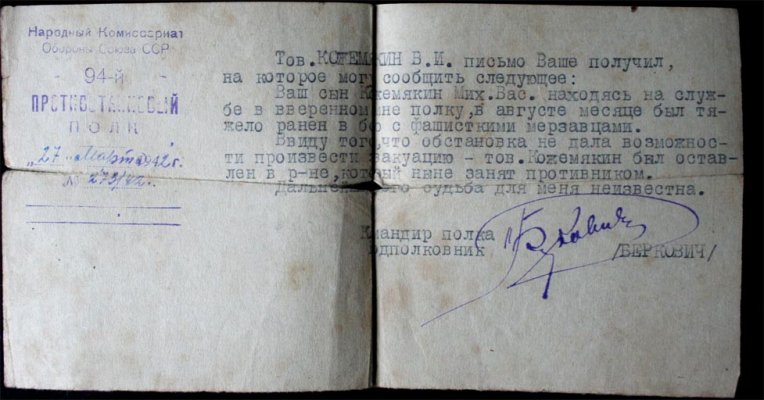 Народный Комиссариат
Обороны Союза ССР
94-й
ПРОТИВОТАНКОВЫЙ
ПОЛК
"27" Марта 1942 г.
№ 273/42 г.
Тов. КОЖЕМЯКИН В.И. письмо Ваше получил,
на которое могу сообщить следующее:
Ваш сын Кожемякин Мих.Вас. находясь на служ-
бе в вверенном мне полку, в августе месяце был тя-
жело ранен в бою с фашисткими мерзавцами.
Ввиду того, что обстановка не дала возможнос-
ти произвести эвакуацию - тов. Кожемякин был остав-
лен в р-не, который ныне занят противником.
Дальнейшая его судьба для меня неизвестна.
Командир полка
Подполковник /БЕРКОВИЧ/